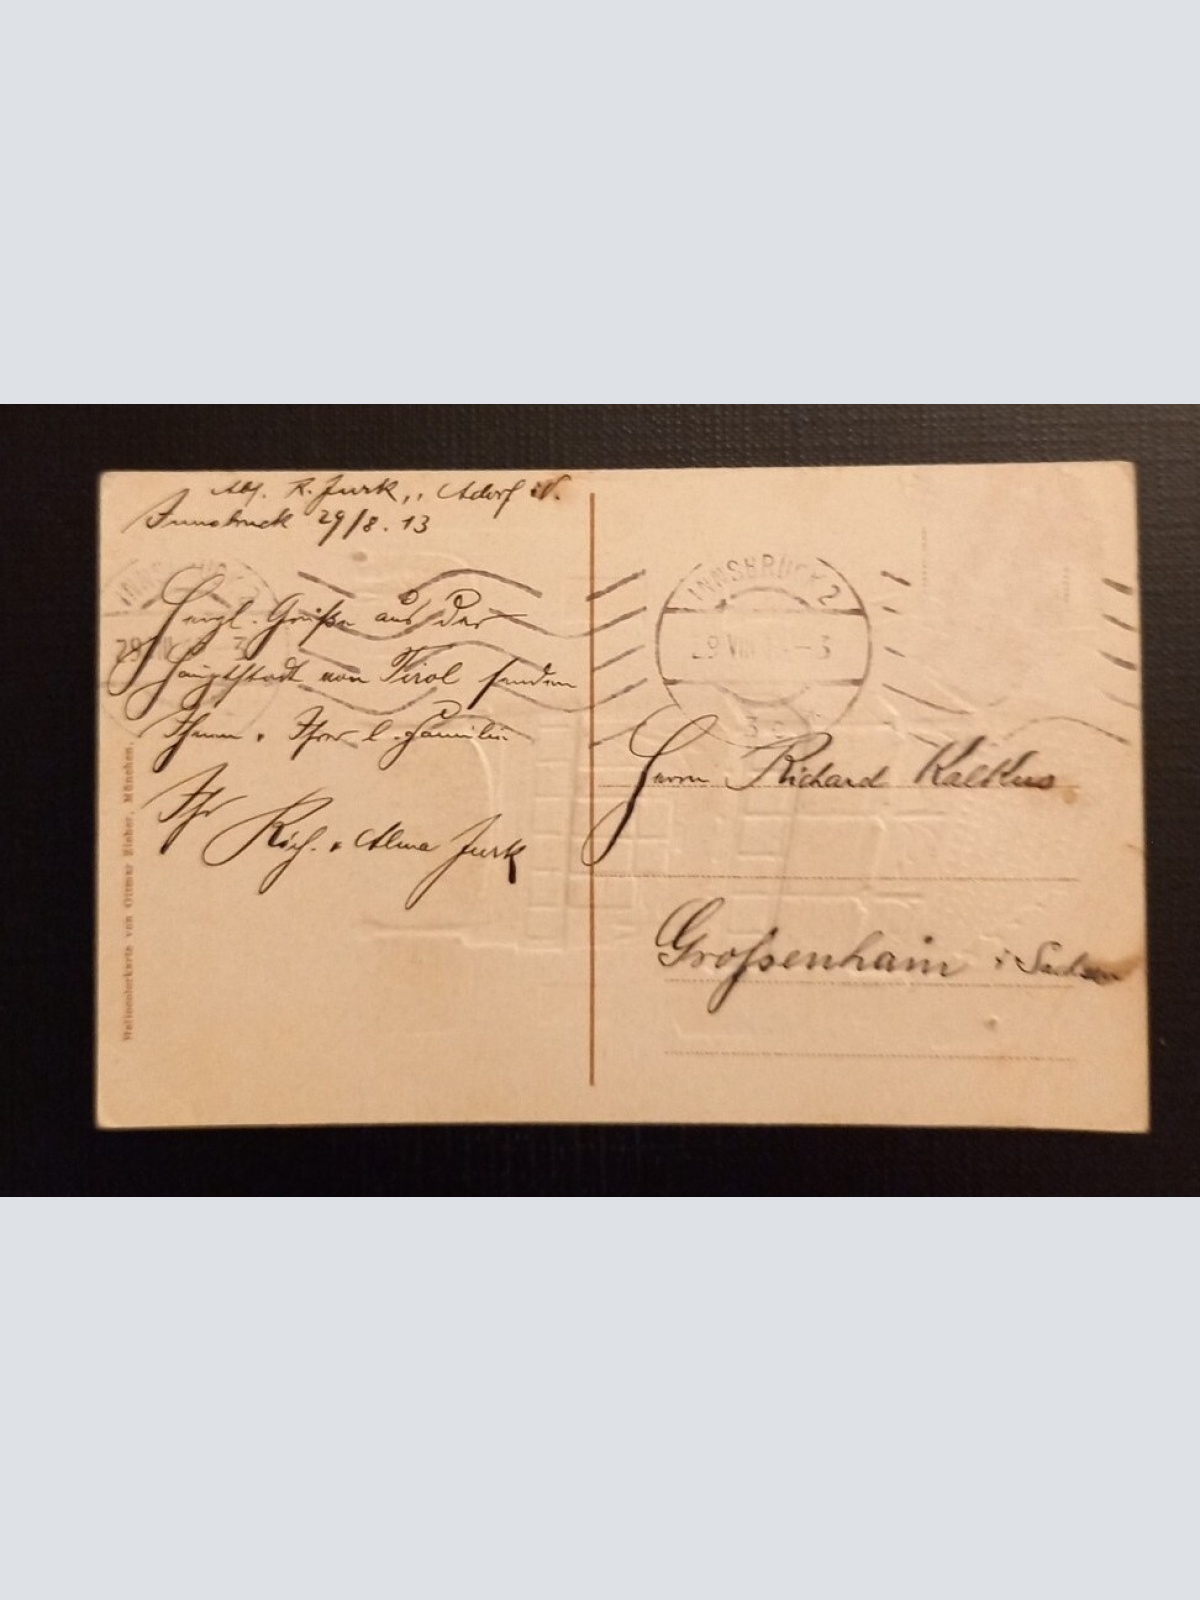 Abs. R. Jurk, Adorf i/V.
Innsbruck 29/8. 13
Herzl. Grüße aus der
Hauptstadt von Tirol senden
Ihnen u. Ihrer l. Familie
Ihr
Rich. u. Alma Jurk
INNSBRUCK 2
29 VIII 3
INNSBRUCK 2
29 VIII 3
Herrn Richard Kalkus
Grossenhain i Sachsen
Reliefkarte von Ottmar Zieher, München.